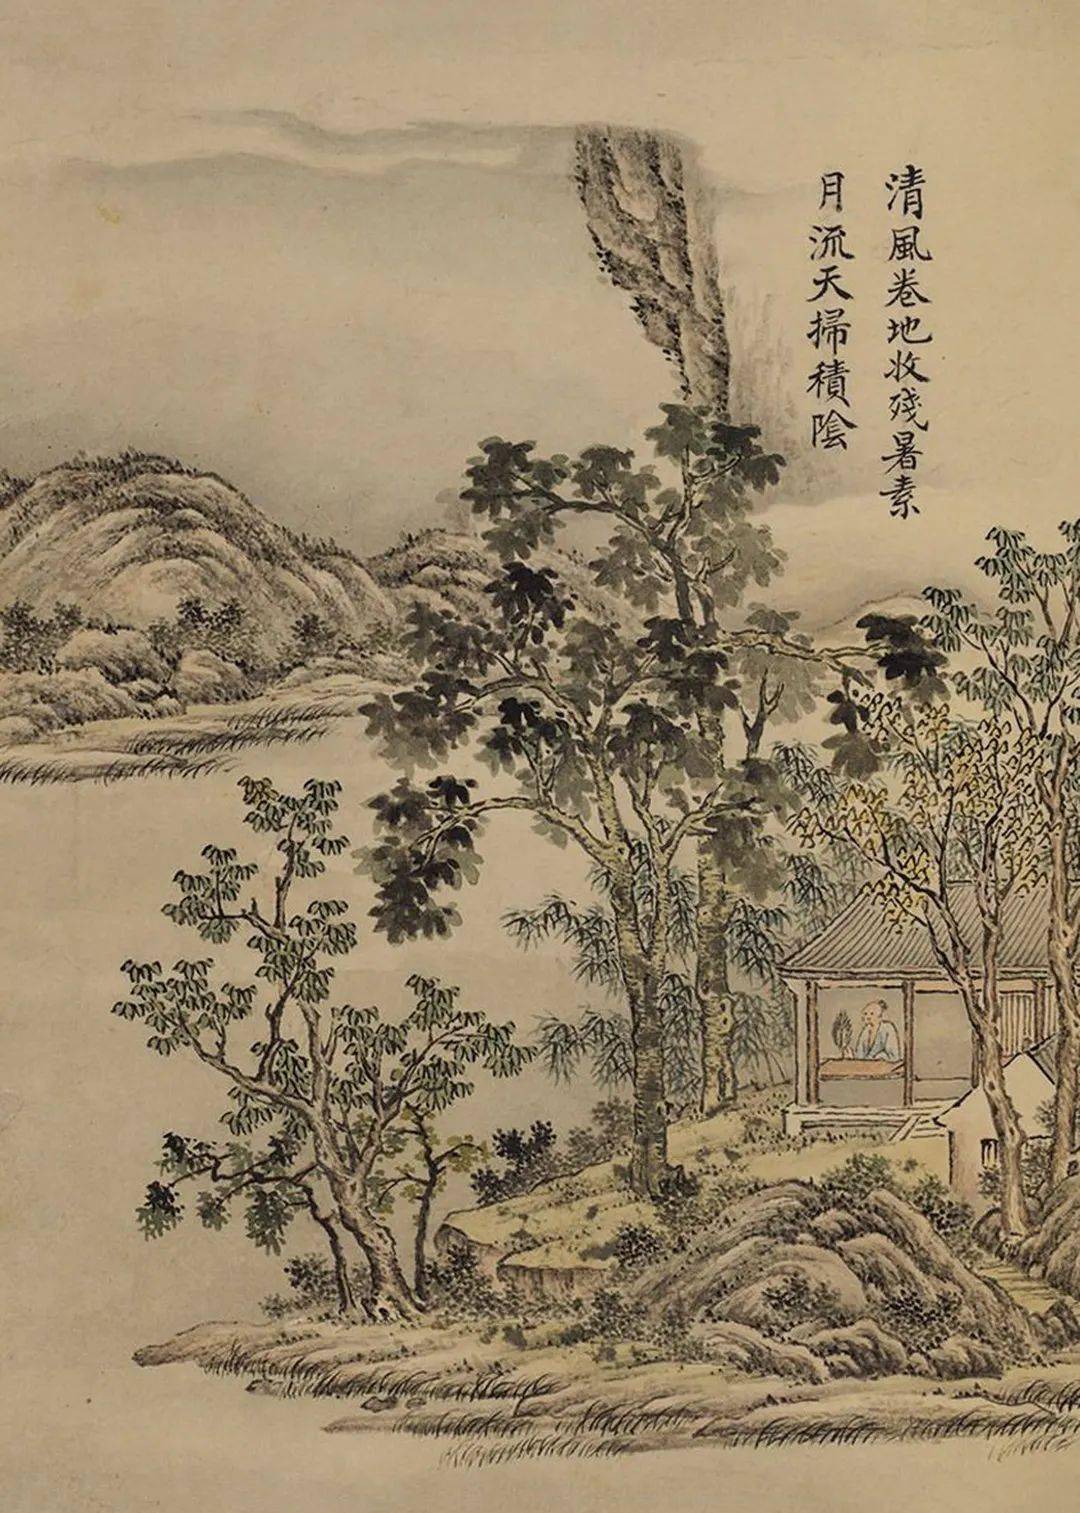 清風卷地收殘暑素
月流天掃積陰